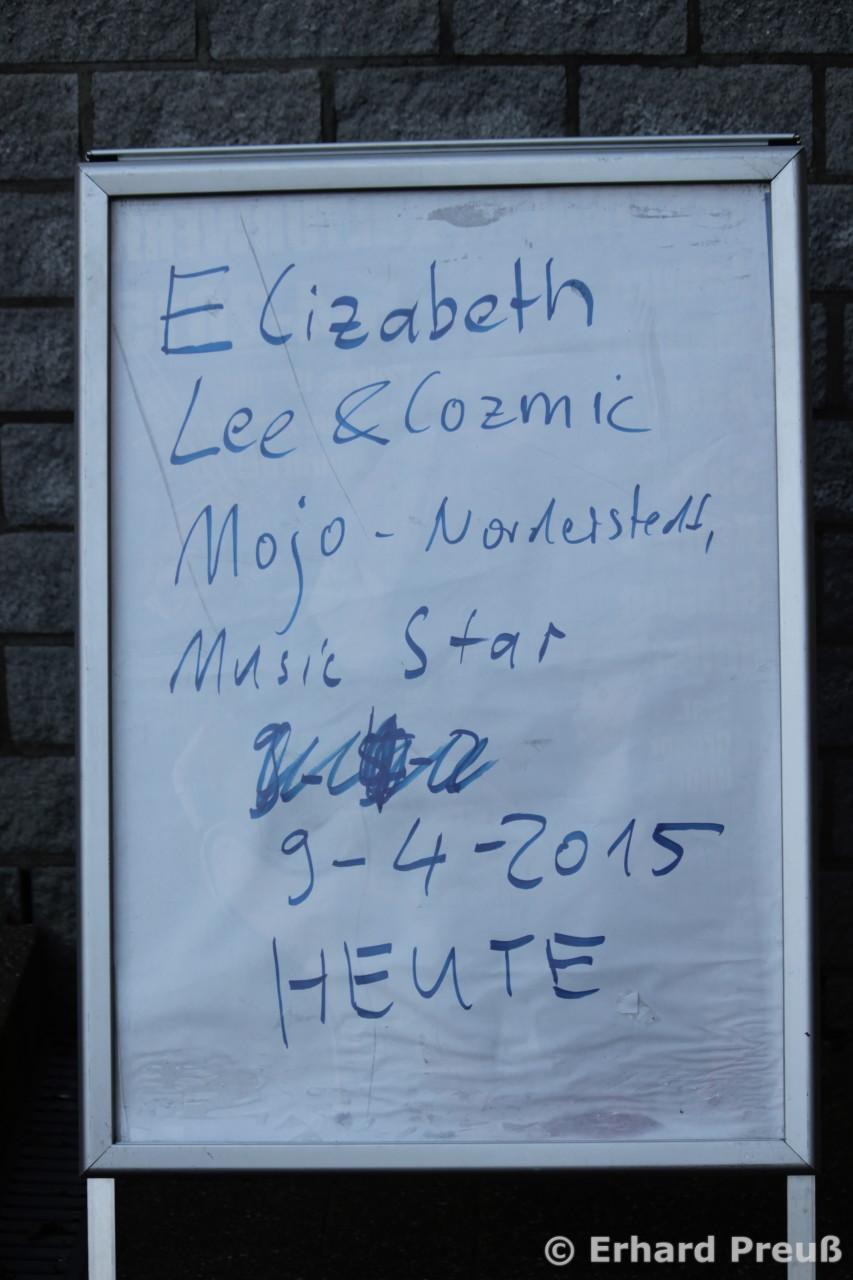 Elizabeth
Lee & Cozmic
Mojo - Norderstedt,
Music Star
9-4-2015
HEUTE
© Erhard Preuß